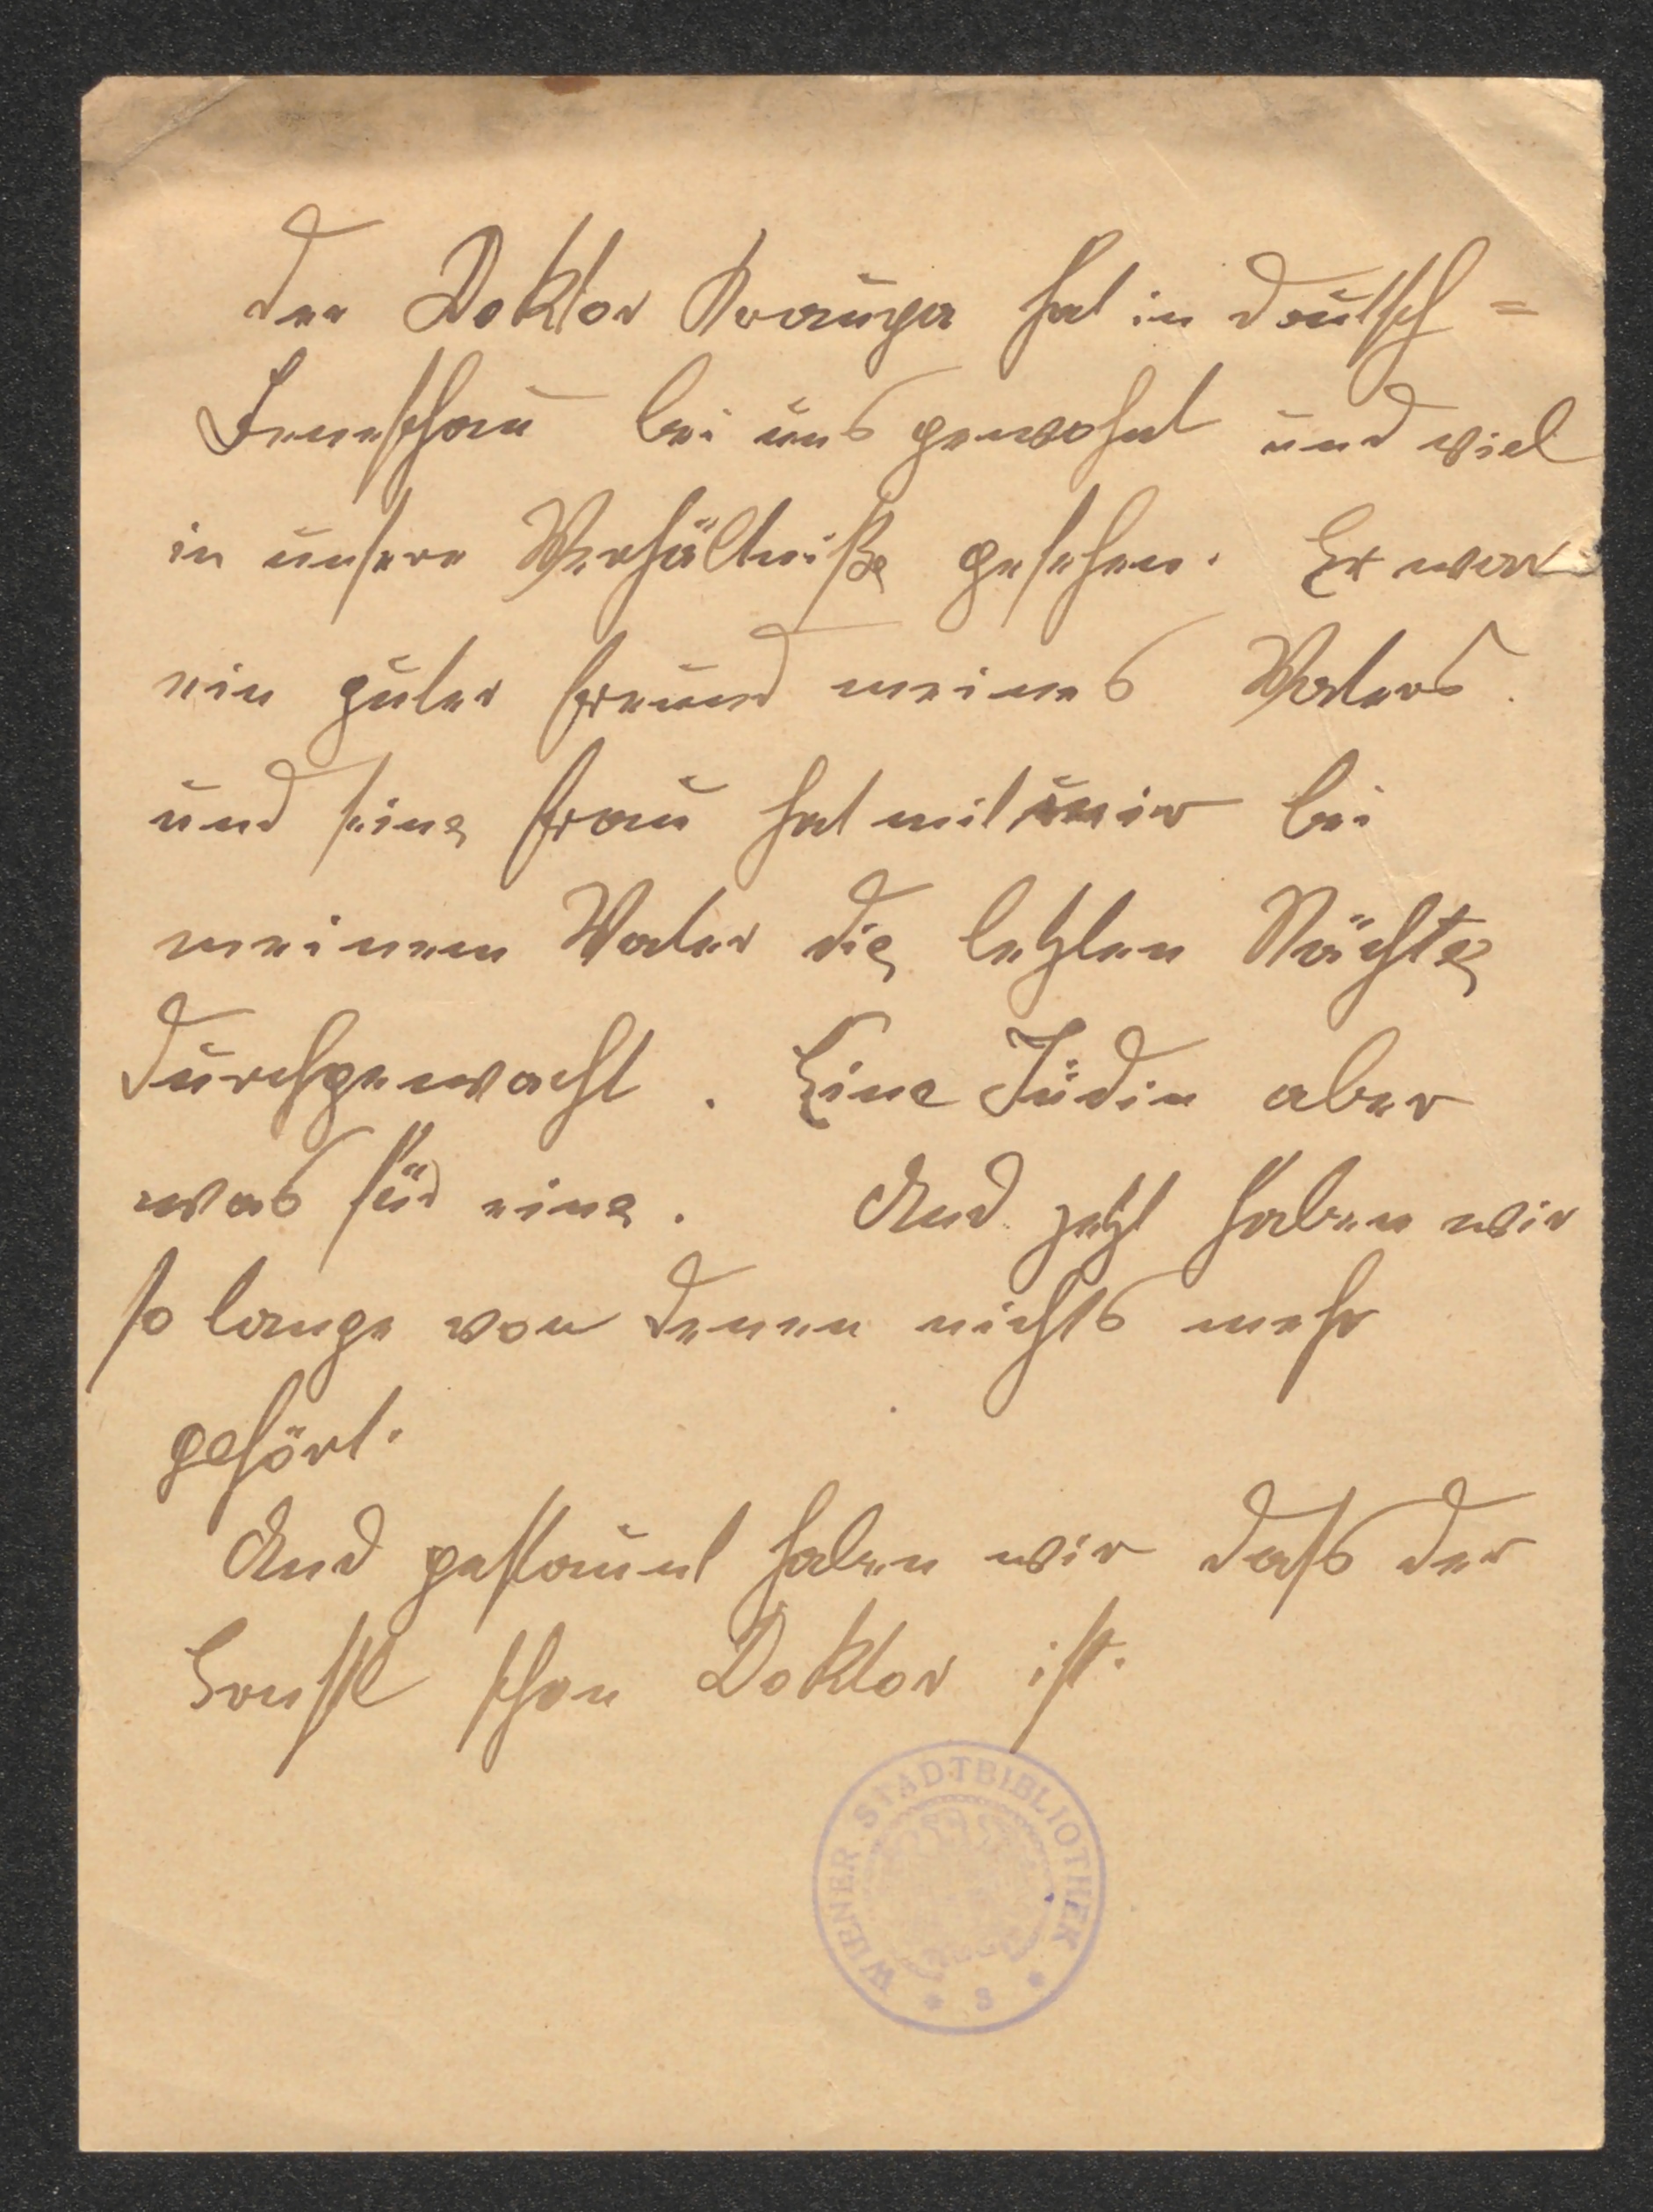 Der Doktor Kraupa hat in Deutsch=
Beneschau bei uns gewohnt und viel
in unsere Verhältniße gesehen. Er war
ein guter Freund meines Vaters
und seine Frau hat mit mir bei
meinem Vater die letzten Nächte
durchgewacht. Eine Jüdin aber
was für eine. Und jetzt haben wir
so lange von denen nichts mehr
gehört.
Und gestaunt haben wir daß der
schon Doktor ist.
WIENER STADTBIBLIOTHEK * 8 *